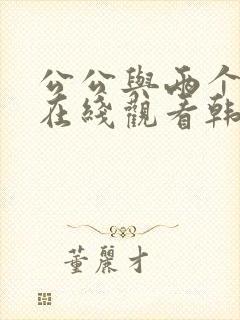 公公與兩个
在綫觀看韩
董麗才